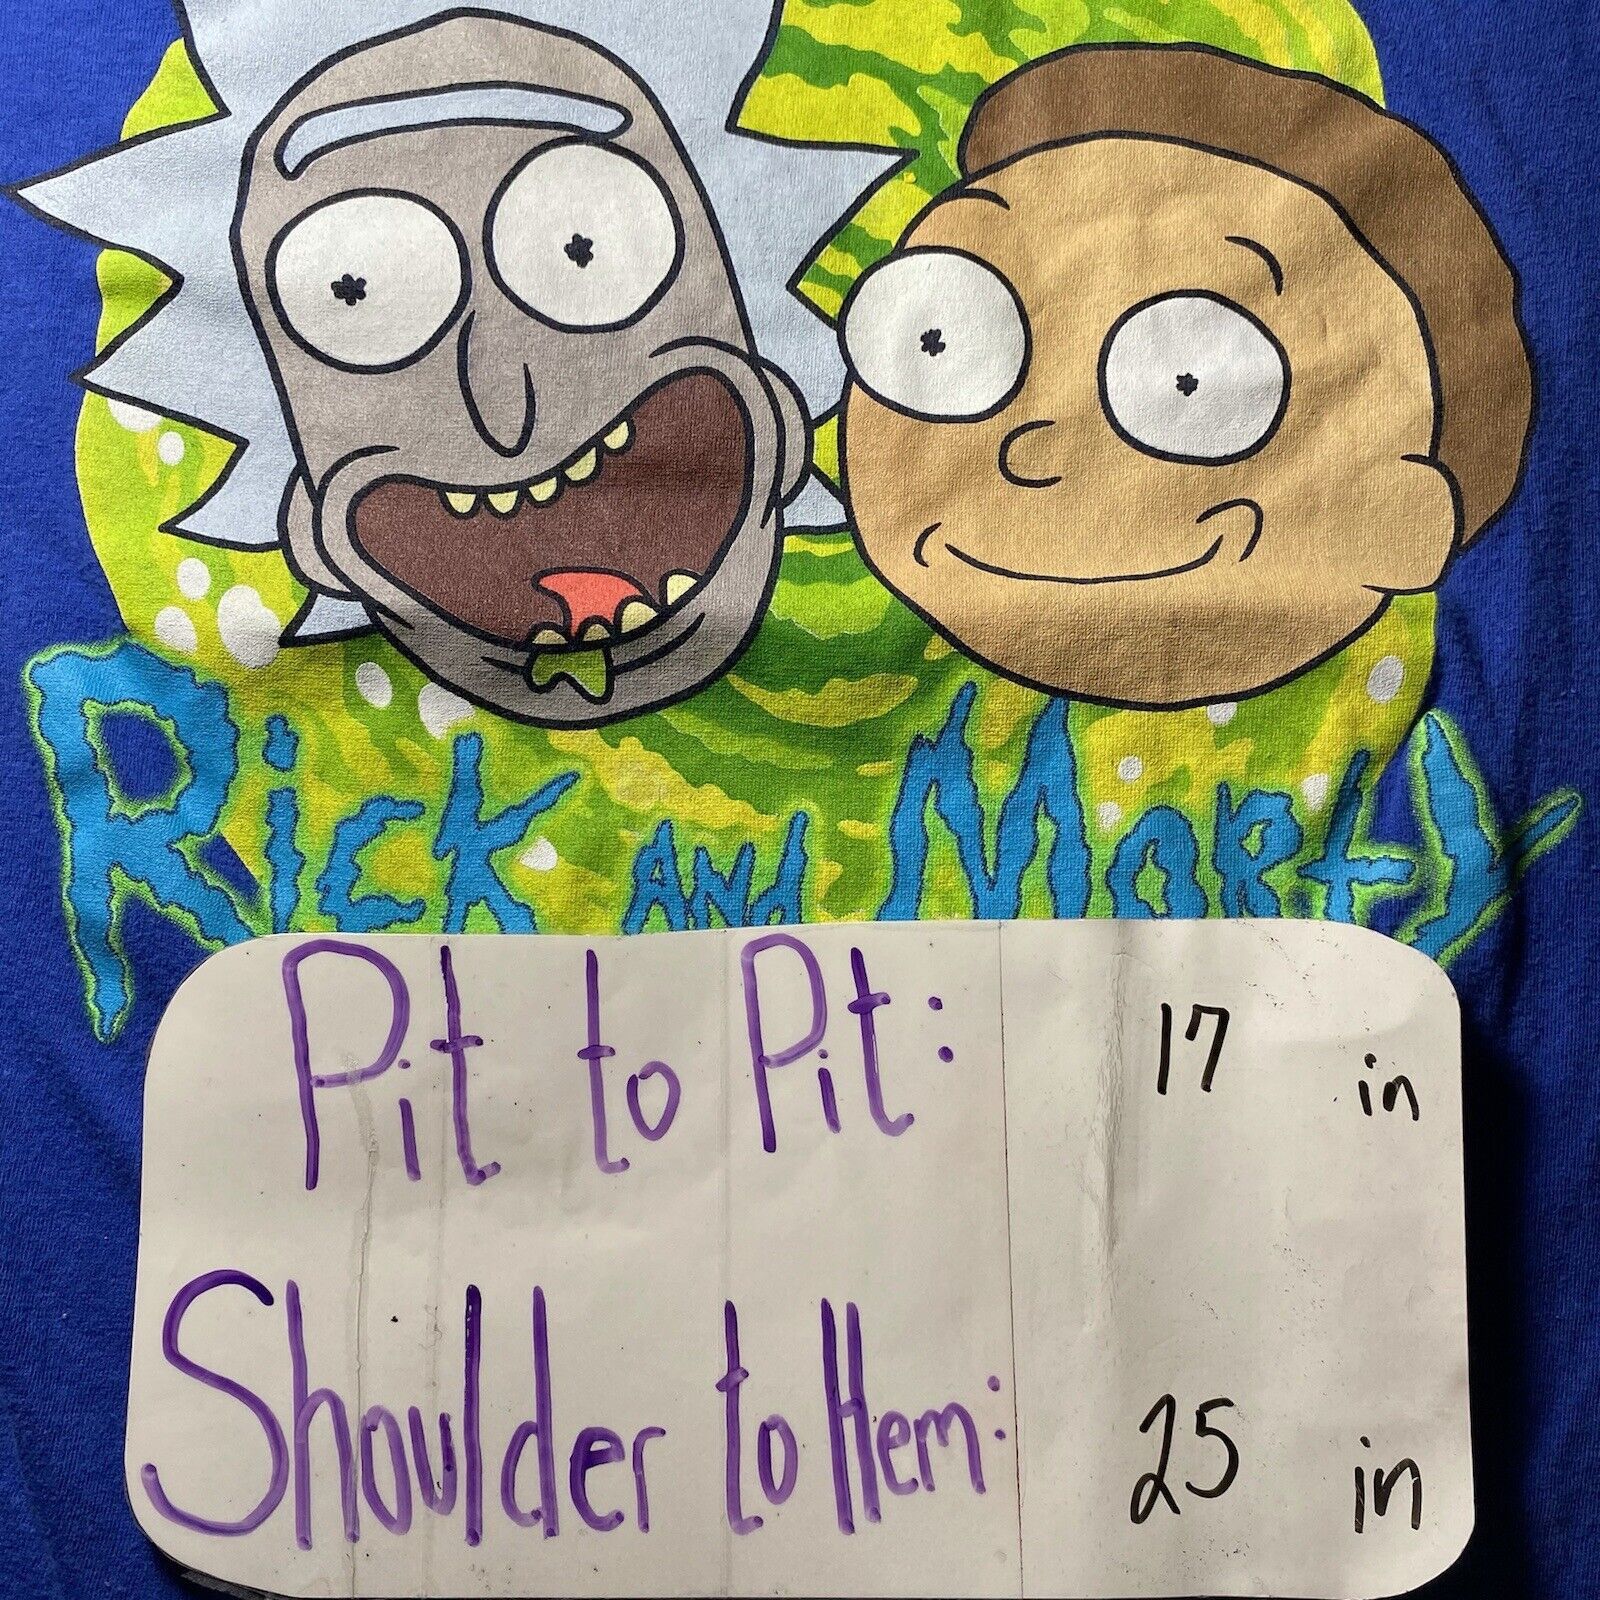 Rick and Morty
Pit to Pit: 17 in
Shoulder to Hem: 25 in